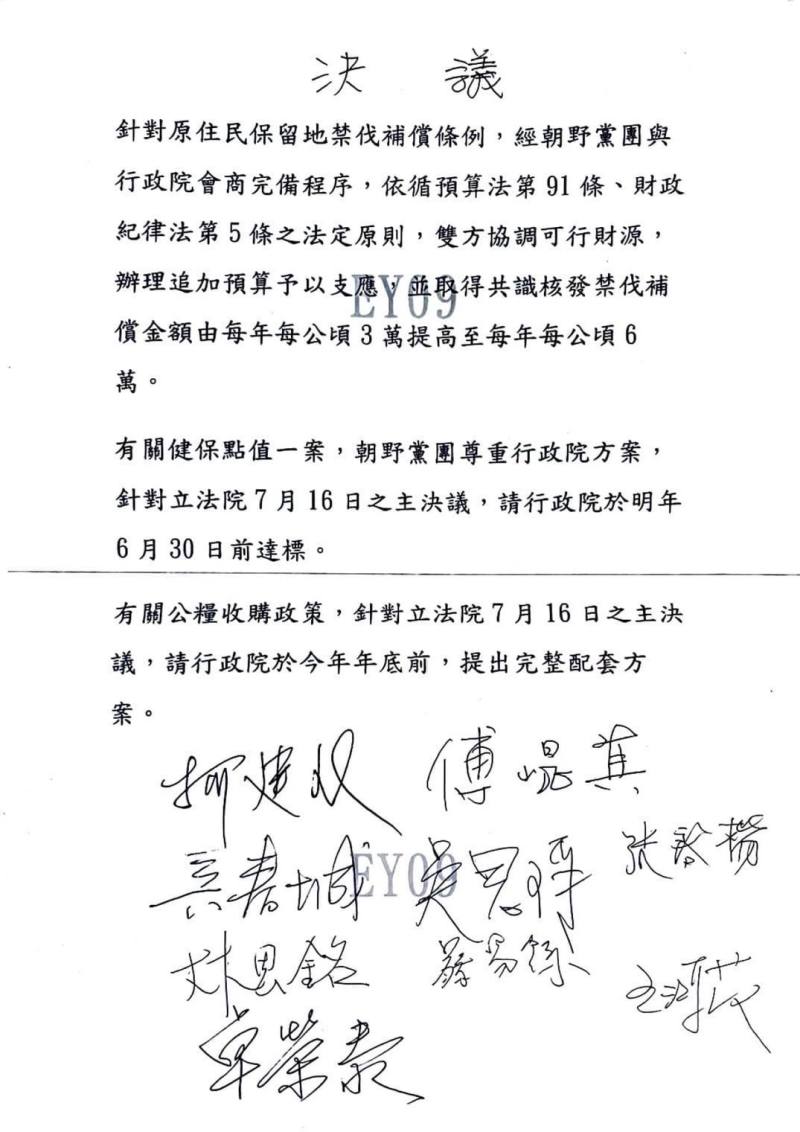 決 議
針對原住民保留地禁伐補償條例，經朝野黨團與
行政院會商完備程序，依循預算法第 91 條、財政
紀律法第 5 條之法定原則，雙方協調可行財源，
辦理追加預算予以支應，並取得共識核發禁伐補
EY09
償金額由每年每公頃 3 萬提高至每年每公頃 6
萬。
有關健保點值一案，朝野黨團尊重行政院方案，
針對立法院 7 月 16 日之主決議，請行政院於明年
6 月 30 日前達標。
有關公糧收購政策，針對立法院 7 月 16 日之主決
議，請行政院於今年年底前，提出完整配套方
案。
柯建 傅崐萁
張啓楷
EY09
吳思瑤
林思銘
卓榮泰